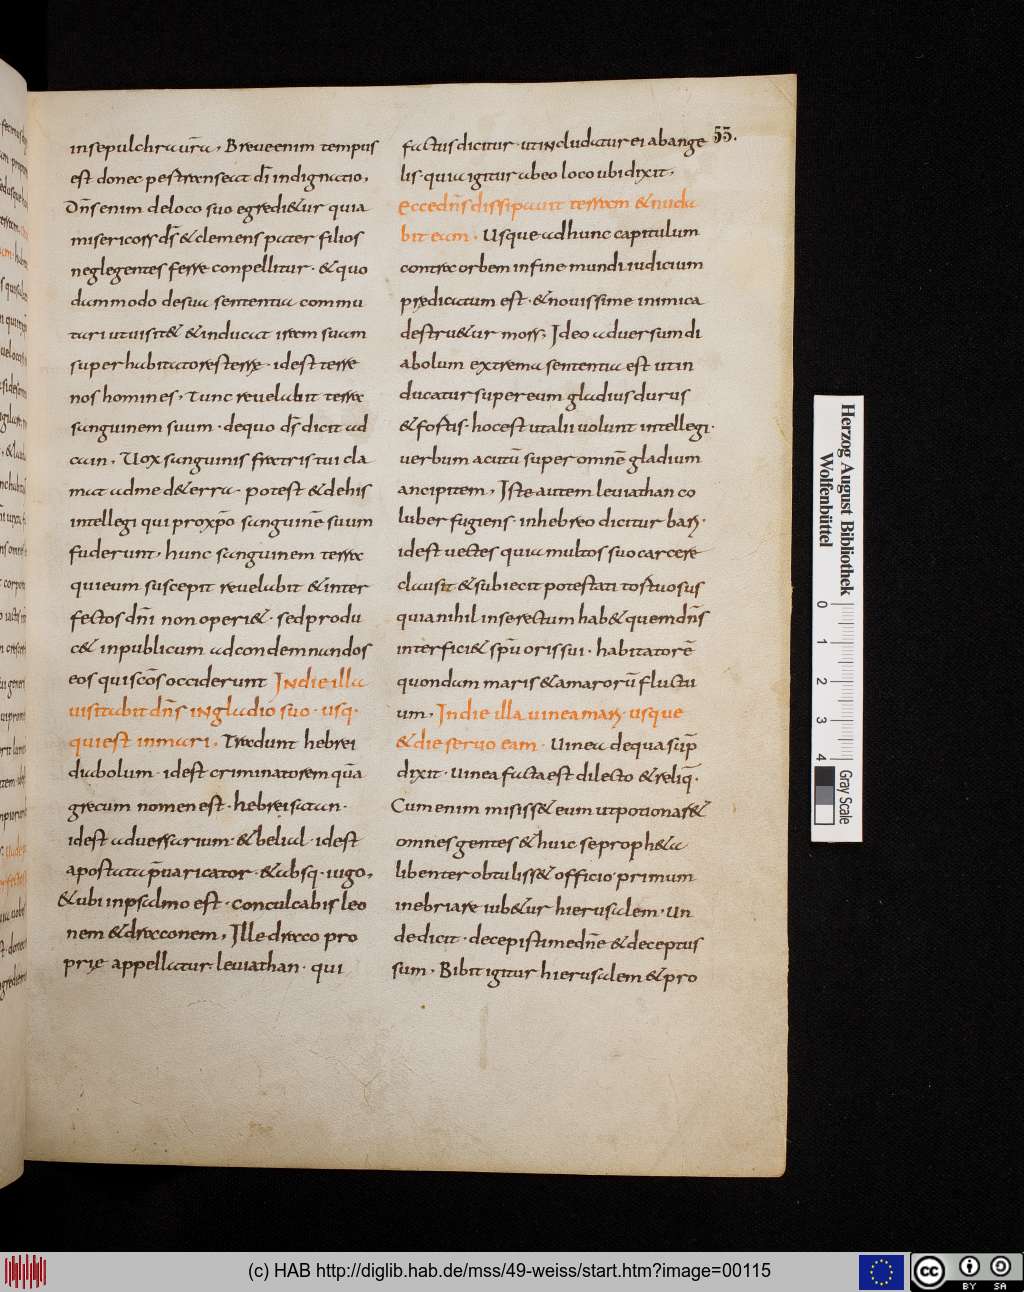 53.
insepulchra ur̄a, Breue enim tempus
est donec pestranseat dī indignatio,
Dn̄s enim deloco suo egredi&ur quia
misericors ds̄ &clemens pater filios
neglegentes ferre conpellitur· &quo
dammodo desua sententia commu
tari utuisit& &inducat iram suam
super habitatores terrę· idest terre
nos homines, Tunc reuelabit terra
sanguinem suum· dequo ds̄ dicit ad
cain, Uox sanguinis fratris tui cla
mat adme d&erra· potest &dehis
intellegi qui proxp̄o sanguinē suum
fuderunt, hunc sanguinem terra
quieum suscepit reuelabit &inter
fectos dn̄i non operi&· sedprodu
c& inpublicum adcondemnandos
eos qui scōs occiderunt Indie illa
uisitabit dn̄s ingladio suo· usq·
qui est inmari, Tradunt hebrei
diabolum· idest criminatorem quā
grecum nomen est· hebrei satan·
idest aduersarium· &belial· idest
apostata p̄uaricator· &absq· iugo,
&ubi inpsalmo est· conculcabis leo
nem &draconem, Ille draco pro
prię appellatur leuiathan· qui
factus dicitur· utincludatur ei abange
lis· quia igitur abeo loco ubi dixit,
Ecce dn̄s dissipauit terram &nuda
bit eam, Usque adhunc capitulum
contra orbem infine mundi iudicium
prędicatum est· &nouissime inimica
destru&ur mors, Ideo aduersum di
abolum extrema sententia est utin
ducatur super eum gladius durus
&fortis· hoc est utalii uolunt intellegi·
uerbum acutū super omnē gladium
ancipitem, Iste autem leuiathan co
luber fugiens· inhebreo dicitur bar·
idest uectes quia multos suo carcere
clausit &subiecit potestati tortuosus
quia nihil inserectum hab& quemdn̄s
interfici& spū oris sui· habitatorē
quondam maris &amarorū fluctu
um, Indie illa uinea mar usque
&die seruo eam· Uinea dequa sup̄
dixit· uinea facta est dilecto &reliq̄·
Cum enim misiss& eum utpotionar&
omnes gentes &huic se proph&a
libenter obtuliss& officio primum
inebriare iub&ur hierusalem· Un
de dicit· decepisti me dn̄e &deceptus
sum, Bibit igitur hierusalem &pro
Herzog August Bibliothek
Wolfenbüttel
0 1 2 3 4
Gray Scale
(c) HAB http://diglib.hab.de/mss/49-weiss/start.htm?image=00115
cc
BY SA